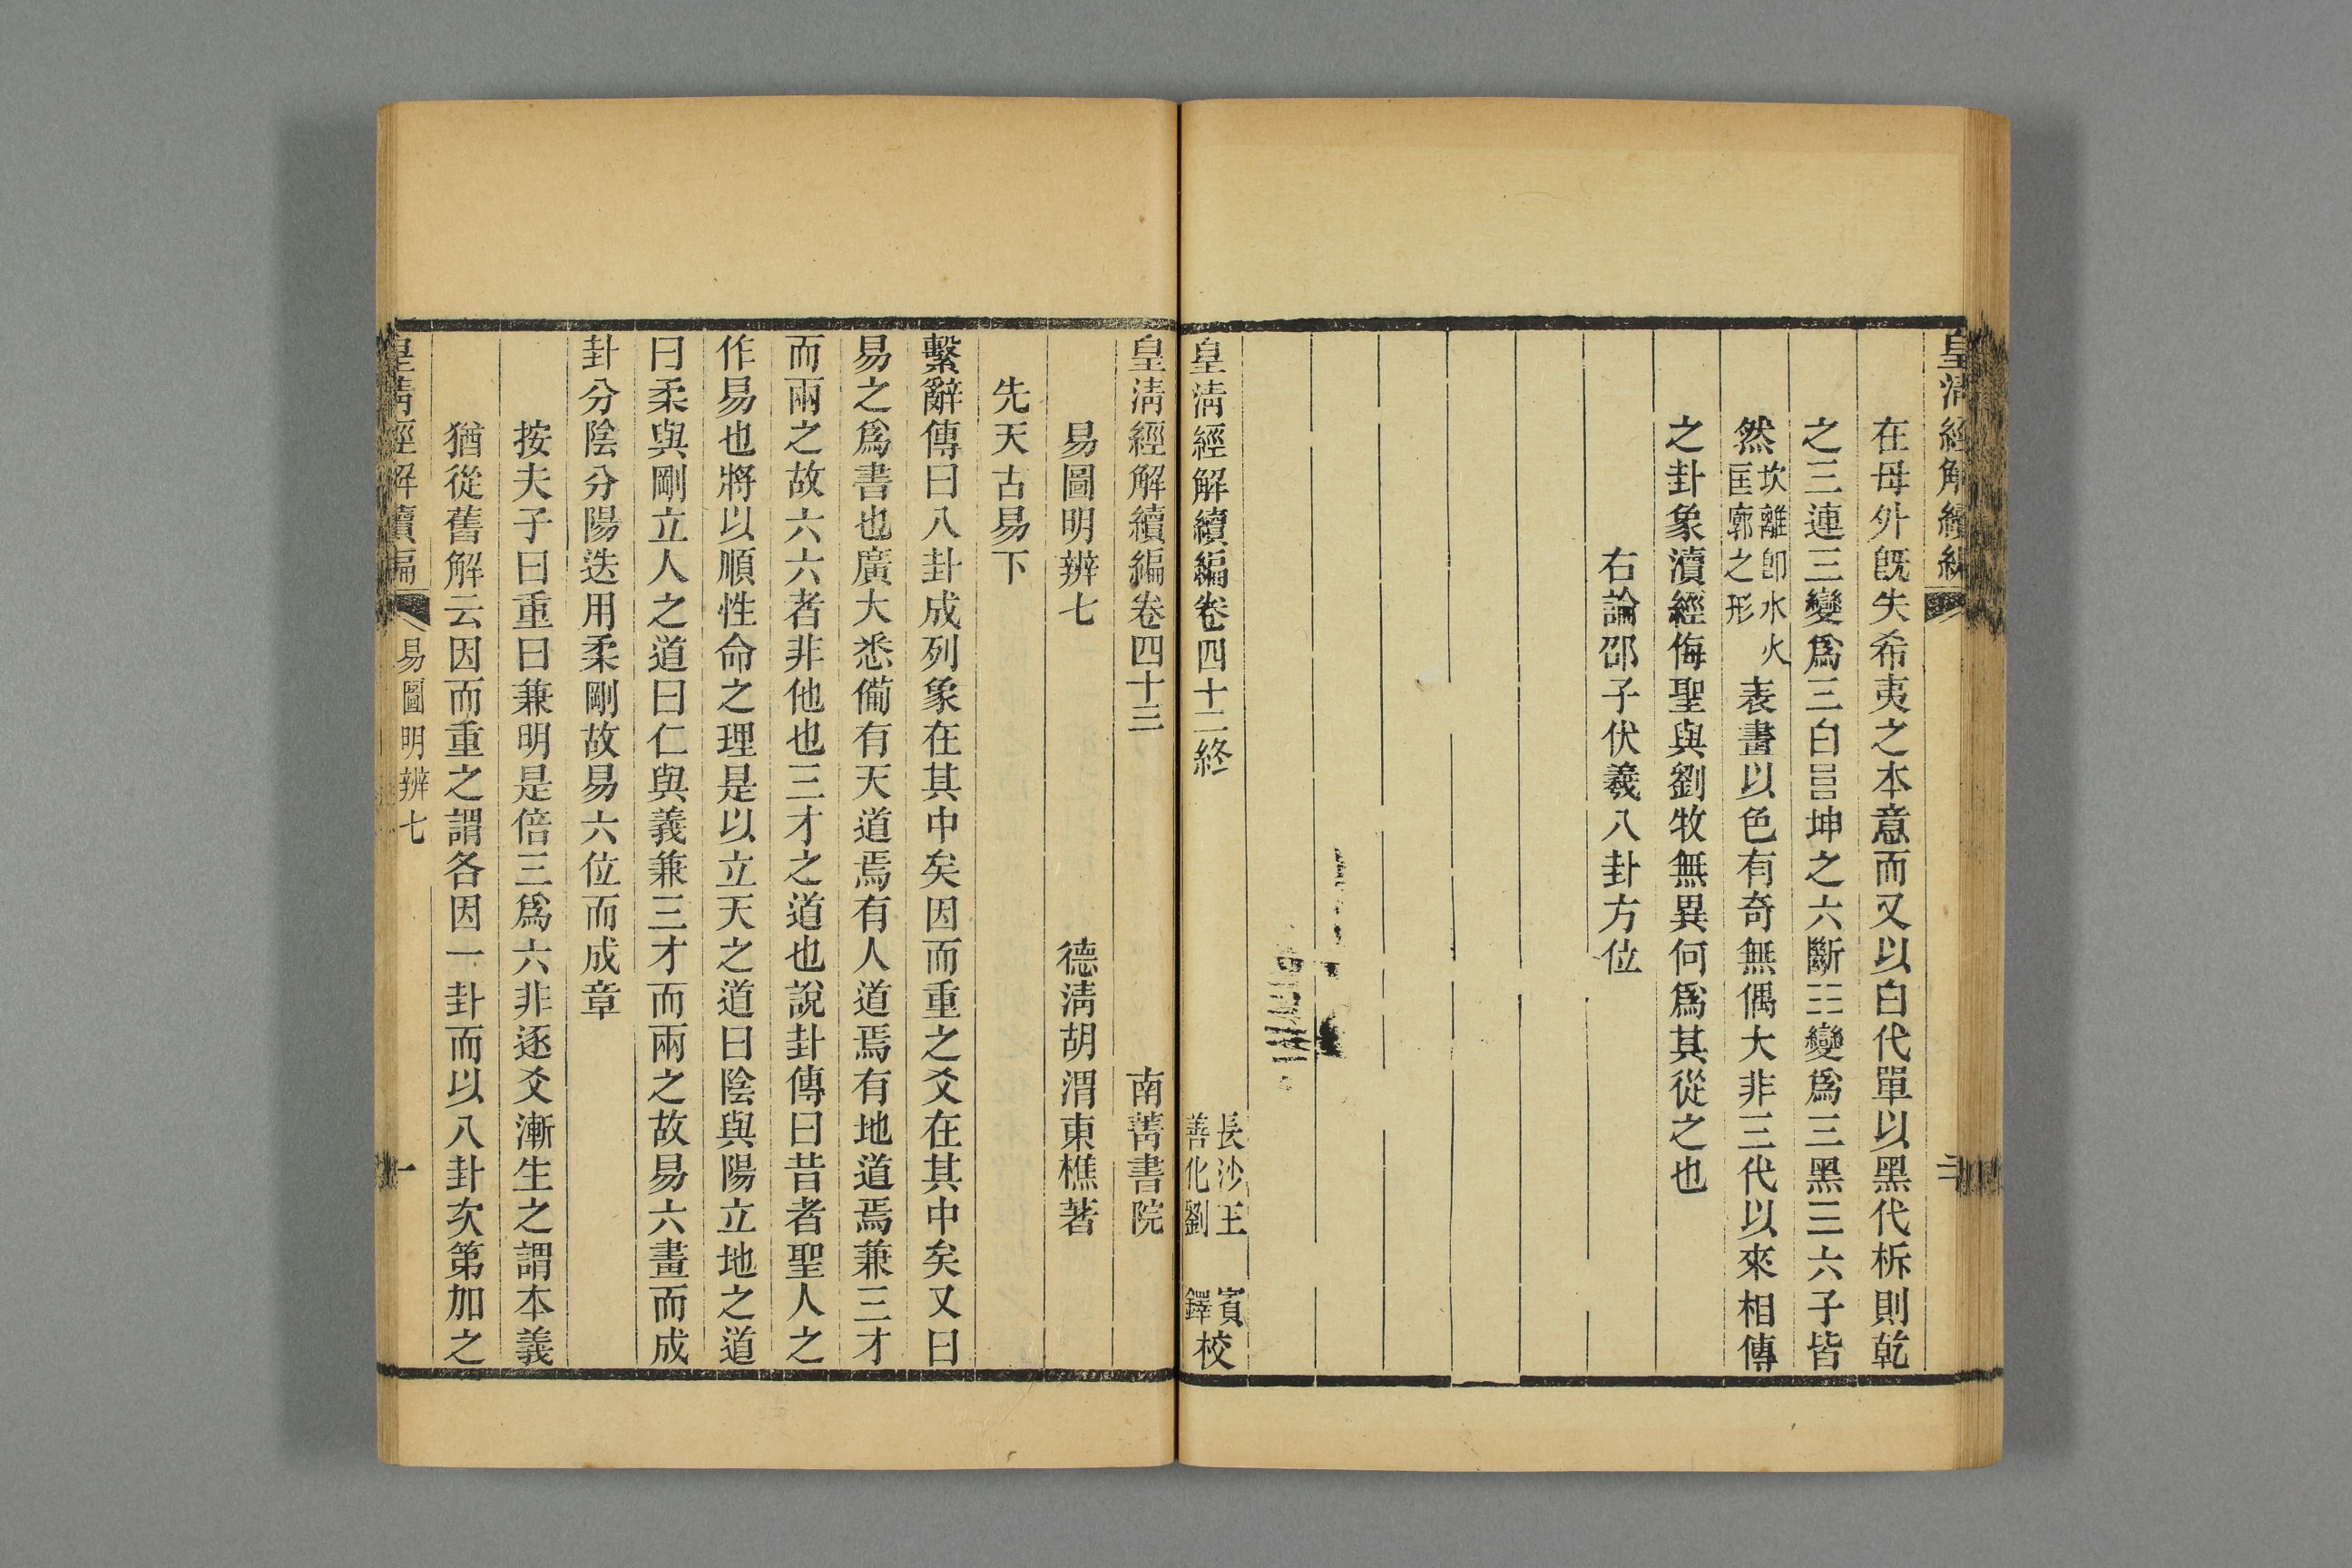 皇清經解續編
在母外旣失希夷之本意而又以白代單以黑代柝則乾
之三連三變爲三白坤之六斷☷變爲三黑三六子皆
然坎離卽水火匡廓之形表畫以色有奇無偶大非三代以來相傳
之卦象瀆經侮聖與劉牧無異何爲其從之也
右論邵子伏羲八卦方位
皇清經解續編卷四十二終
長沙王 賓
善化劉 鐸校
皇清經解續編卷四十三 南菁書院
易圖明辨七 德清胡 渭東樵著
先天古易下
繫辭傳曰八卦成列象在其中矣因而重之爻在其中矣又曰
易之爲書也廣大悉備有天道焉有人道焉有地道焉兼三才
而兩之故六六者非他也三才之道也說卦傳曰昔者聖人之
作易也將以順性命之理是以立天之道曰陰與陽立地之道
曰柔與剛立人之道曰仁與義兼三才而兩之故易六畫而成
卦分陰分陽迭用柔剛故易六位而成章
按夫子曰重曰兼明是倍三爲六非逐爻漸生之謂本義
猶從舊解云因而重之謂各因一卦而以八卦次第加之
皇清經解續編 易圖明辨七 一